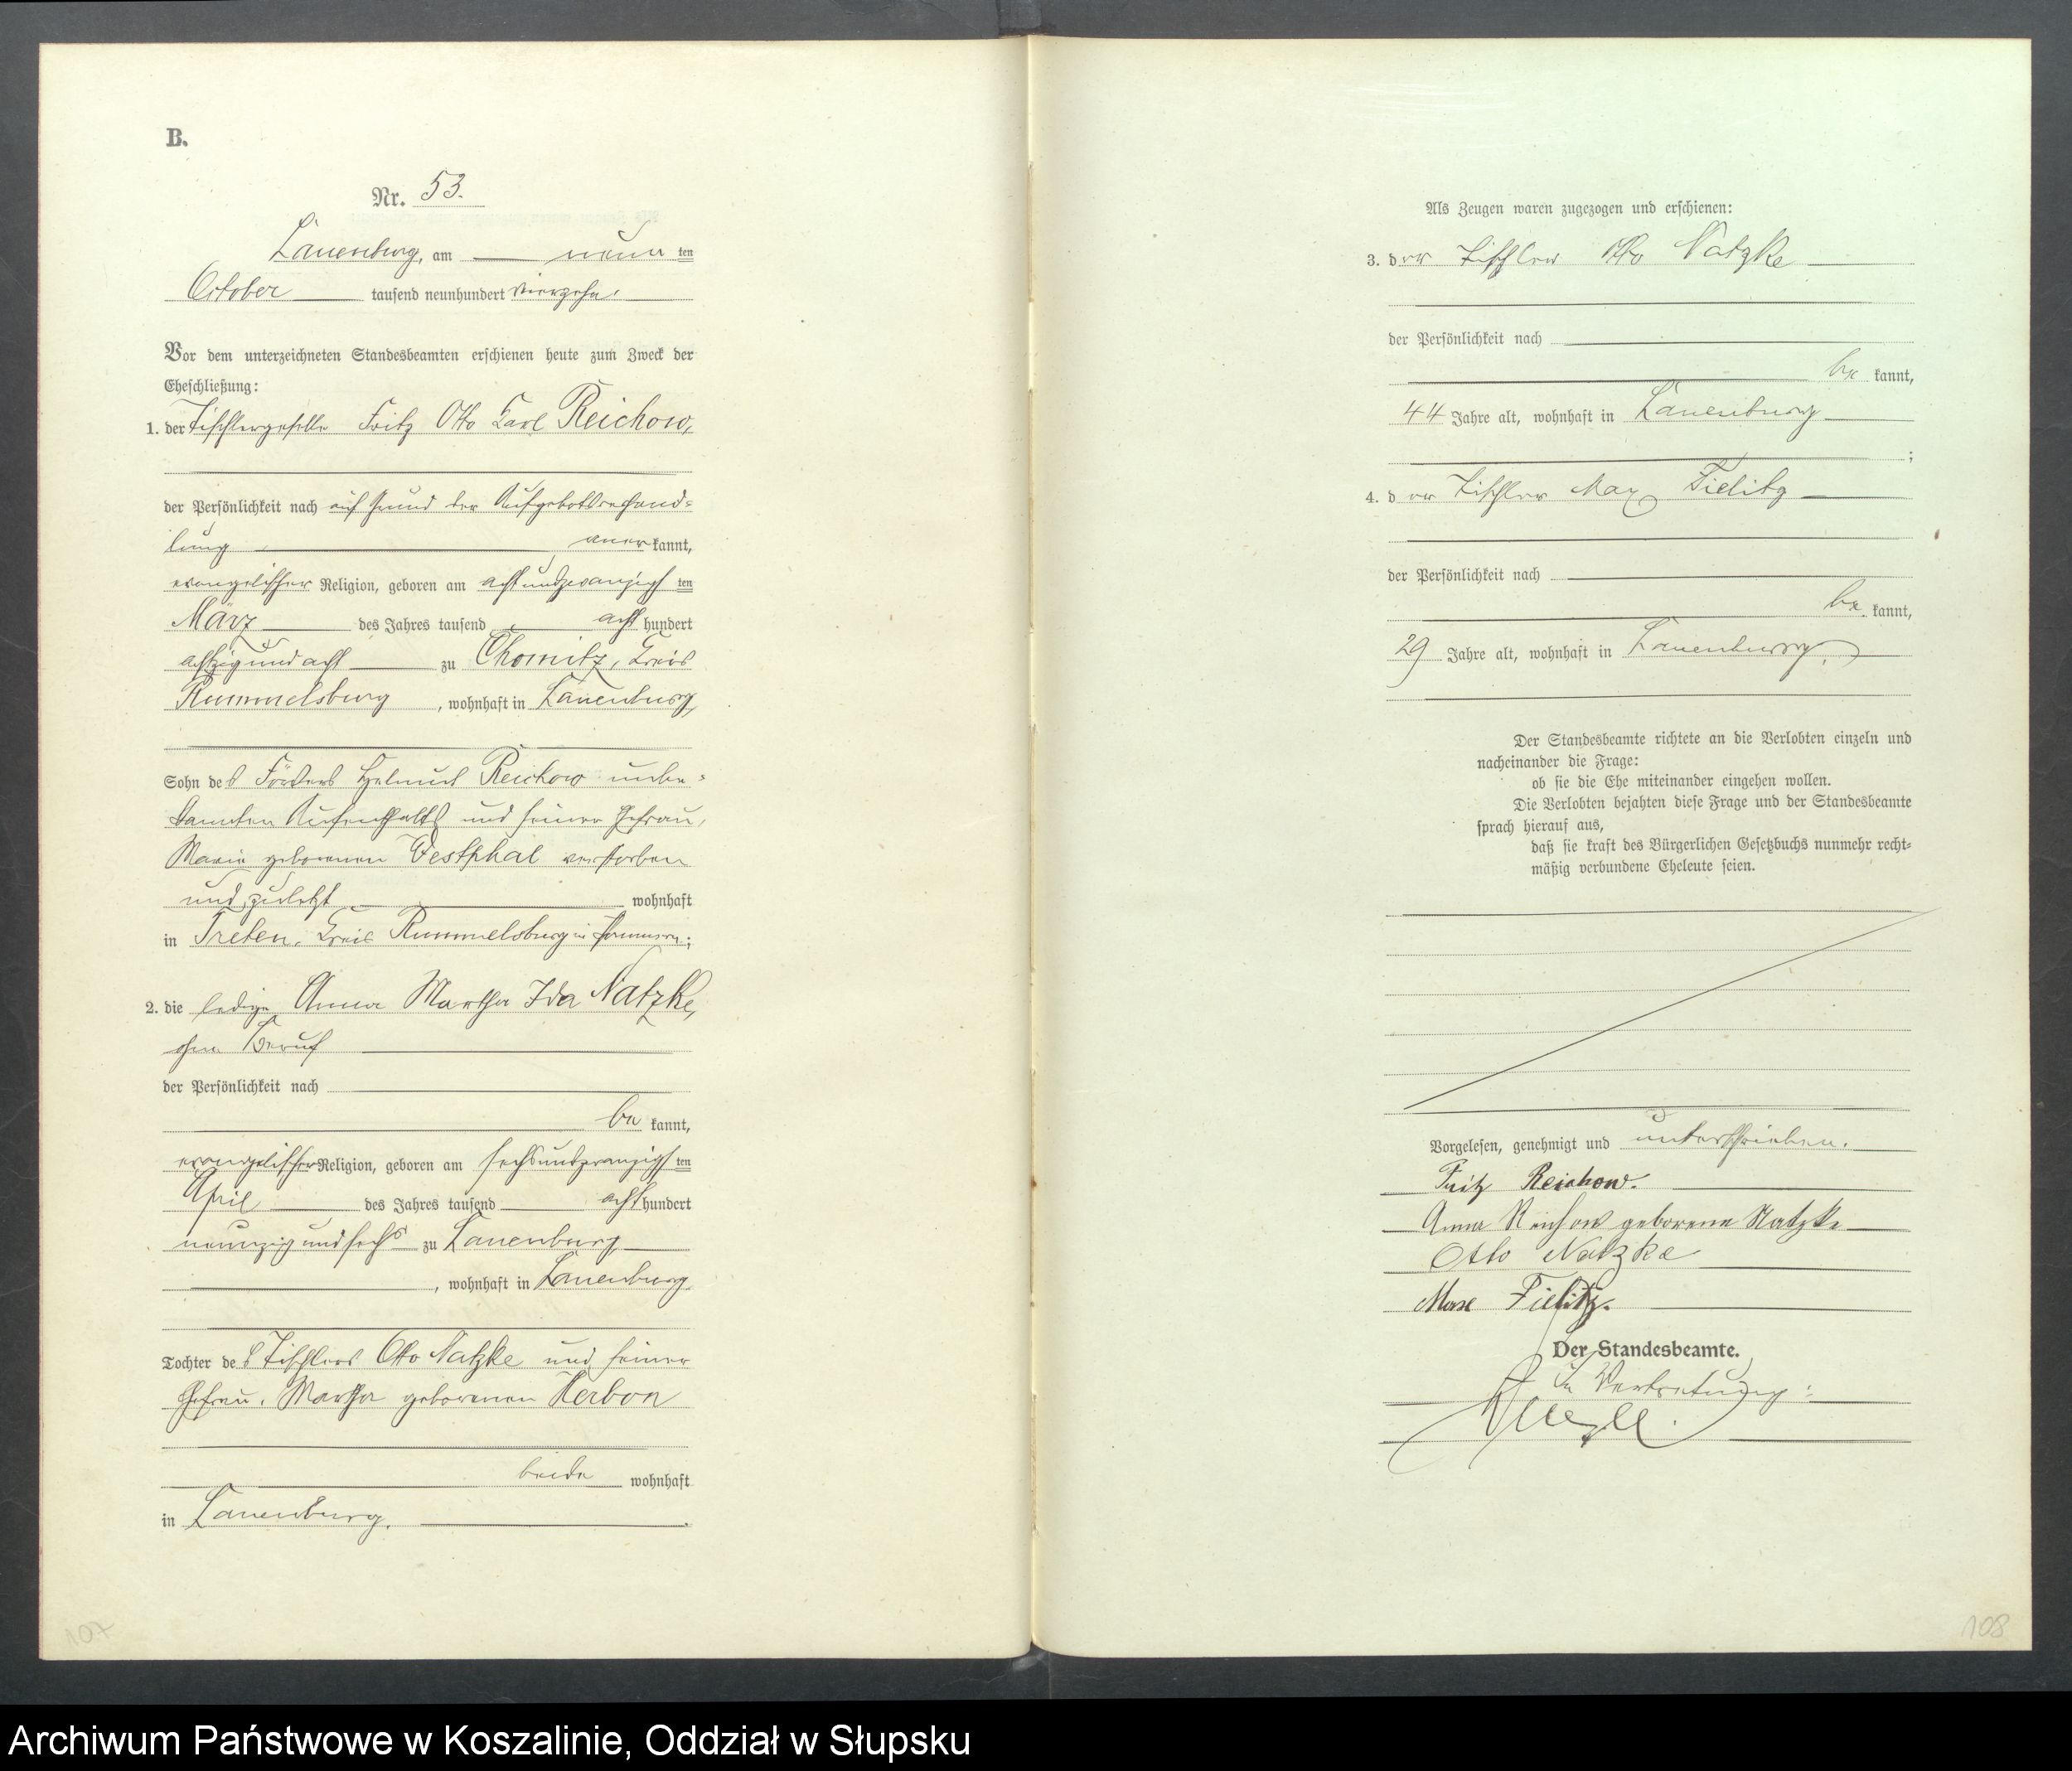 B.
Nr. 53.
Lauenburg, am neunten
October tausend neunhundert vierzehn.
Vor dem unterzeichneten Standesbeamten erschienen heute zum Zweck der
Eheschließung:
1. der Tischlergeselle Fritz Otto Karl Reichow,
der Persönlichkeit nach auf Grund der Aufgebotsverhand=
lung anerkannt,
evangelischer Religion, geboren am achtundzwanzigsten
März des Jahres tausend acht hundert
achtzig und acht zu Chomitz, Kreis
Rummelsburg, wohnhaft in Lauenburg,
Sohn des Försters Helmut Reichow unbe=
kannten Aufenthalts und seiner Ehefrau,
Marie geborenen Westphal verstorben
und zuletzt wohnhaft
in Treten, Kreis Rummelsburg in Pommern;
2. die ledige Anna Martha Ida Natzke,
ohne Beruf
der Persönlichkeit nach
be kannt,
evangelischer Religion, geboren am sechsundzwanzigsten
April des Jahres tausend acht hundert
neunzig und sechs zu Lauenburg
, wohnhaft in Lauenburg
Tochter des Tischlers Otto Natzke und seiner
Ehefrau, Martha geborenen Kerbon
beide wohnhaft
in Lauenburg.
107
Als Zeugen waren zugezogen und erschienen:
3. der Tischler Otto Natzke
der Persönlichkeit nach
be kannt,
44 Jahre alt, wohnhaft in Lauenburg
;
4. der Tischler Max Fielitz
der Persönlichkeit nach
be kannt,
29 Jahre alt, wohnhaft in Lauenburg.
Der Standesbeamte richtete an die Verlobten einzeln und
nacheinander die Frage:
ob sie die Ehe miteinander eingehen wollen.
Die Verlobten bejahten diese Frage und der Standesbeamte
sprach hierauf aus,
daß sie kraft des Bürgerlichen Gesetzbuchs nunmehr recht=
mäßig verbundene Eheleute seien.
Vorgelesen, genehmigt und unterschrieben.
Fritz Reichow.
Anna Reichow geborene Natzke
Otto Natzke
Max Fielitz.
Der Standesbeamte.
In Vertretung:
108
Archiwum Państwowe w Koszalinie, Oddział w Słupsku